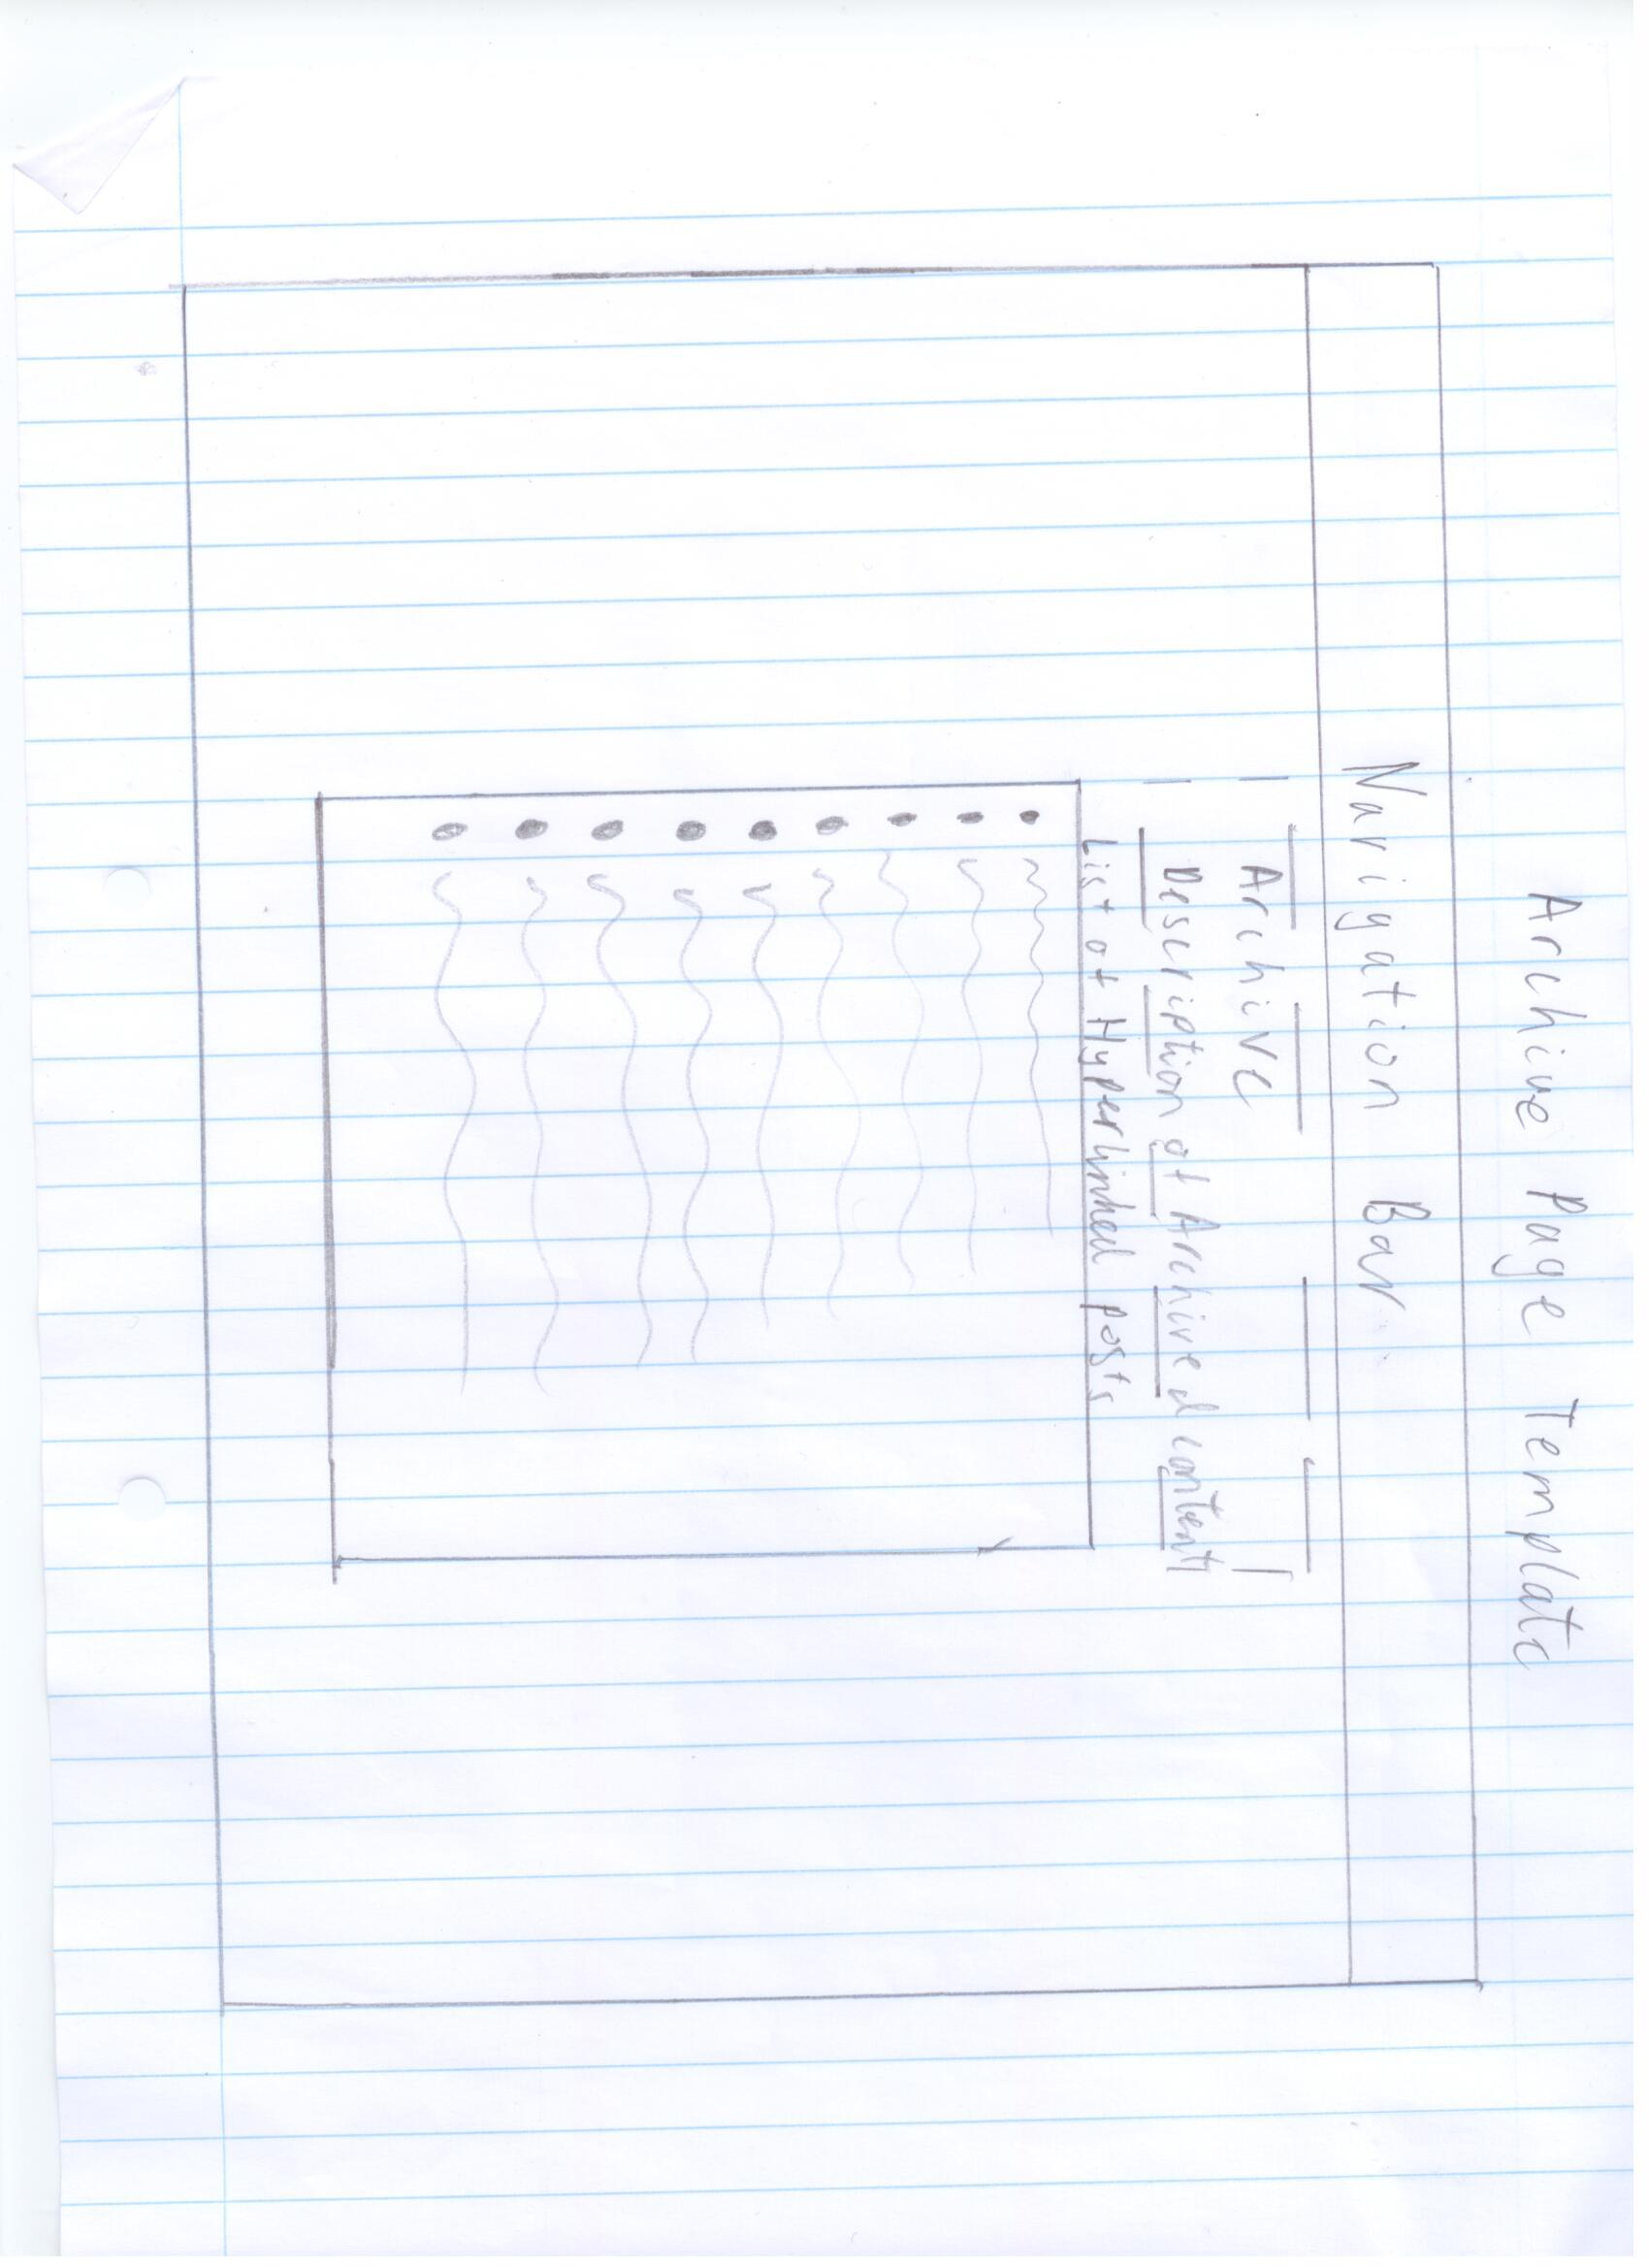 Archive Page Template
Navigation Bar
Archive
Description of Archived content
List of Hyperlinked posts